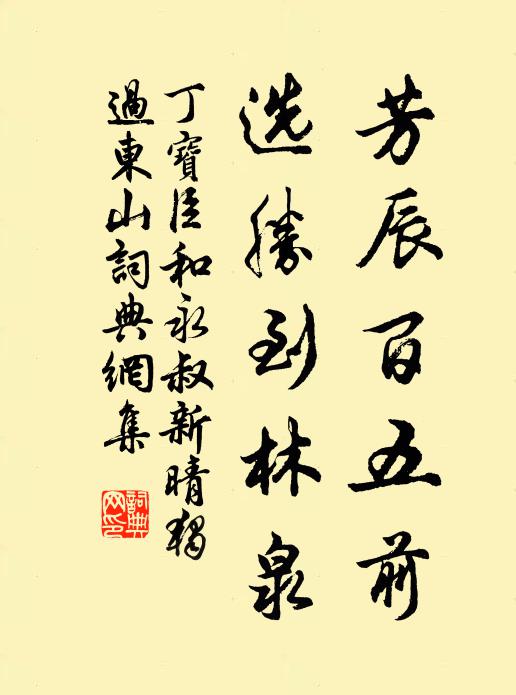 芳辰百五前
选勝到林泉
丁寶臣和永叔新晴獨
過東山詞典網集
詞典
网印